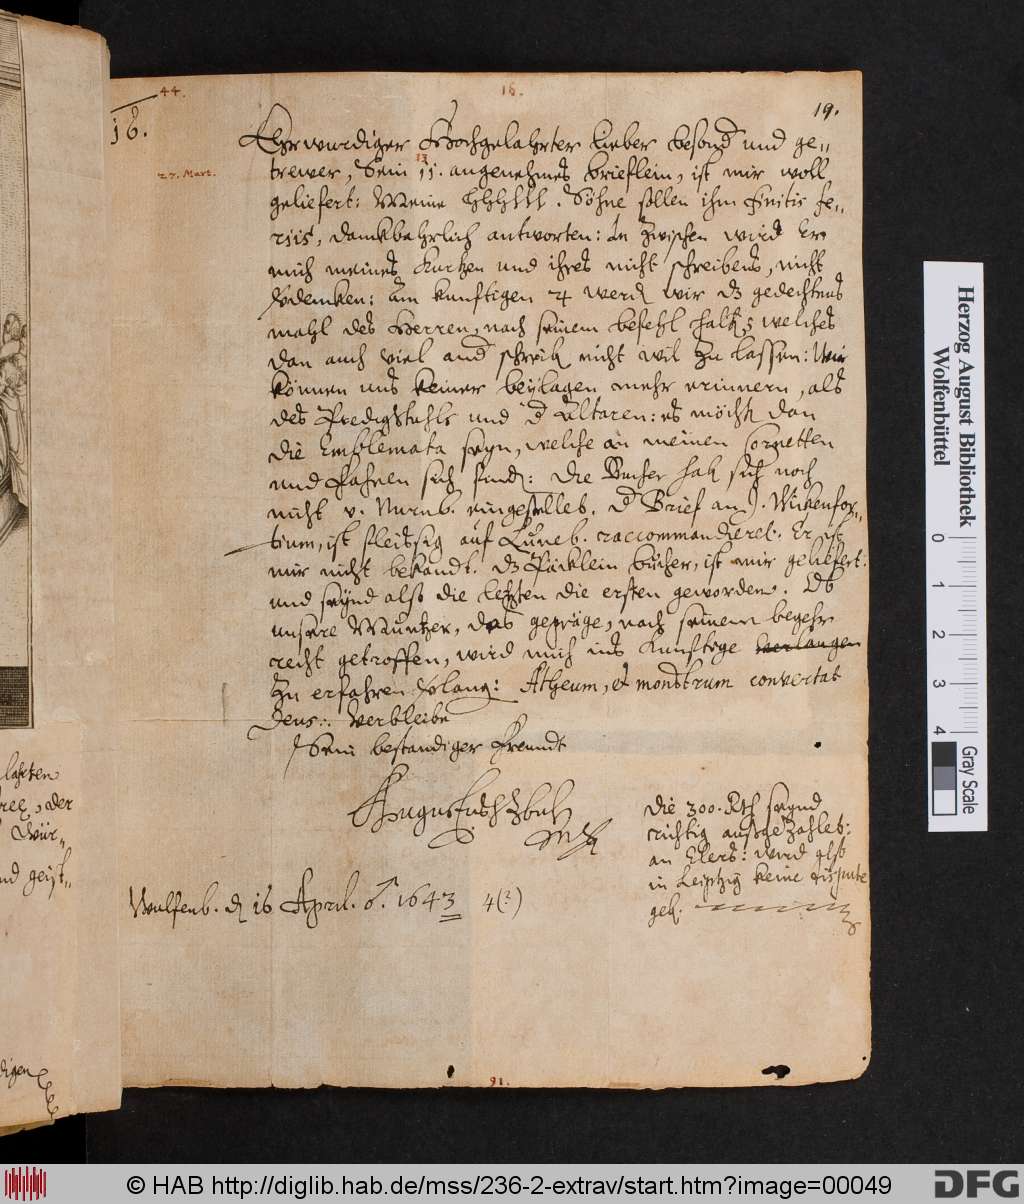 44.
16.
19.
18.
27. Mart.
Ehrwurdiger Hochgelahrter Lieber besond und ge-
trewer, Sein 11. angenehmes brieflein, ist mir woll
13
geliefert: Meine Söhne sollen ihm finitis fe-
riis, danckbahrlich antworten: In zwischen wird Er
mich meines kurtzen und ihres nicht schreibens, nicht
verdencken: Am kunftigen 4 werden wir dz gedechtens
mahl des Herren, nach seinem befehl halten, welches
dan auch viel and schreiben nicht wil zu lassen: Wir
können uns keiner beylagen mehr erinnern, als
des Predigstuhls und d Altaren: es möchten dan
die Emblemata seyn, welche an meinen
und Fahnen sich finden: die Bucher haben sich noch
nicht v. Nurnb. eingestellet. d Brief an Wickenfor-
tium, ist fleissig auf Luneb. raccommandieret. Er ist
mir nicht bekandt. dz Päcklein bücher, ist mir geliefert:
und seynd also die letzten die ersten geworden. Ob
unsere Müntzer, das gepräge, nach seinem begehr
recht getroffen, wird mich ins kunftige verlangen
zu erfahren: Atheum, et monstrum convertat
Deus. Verbleibe
Sein bestandiger Freundt
Augustus HzBuL
die 300. Rth seynd
richtig aussgezahlet:
an Elers: wird
in Leipzig keine
geb.
Wulfenb. d 16 April. ♂. 1643 4(?)
91.
lahrten
der
Wür-
nd geist-
digen
Herzog August Bibliothek
Wolfenbüttel
0 1 2 3 4
Gray Scale
© HAB http://diglib.hab.de/mss/236-2-extrav/start.htm?image=00049
DFG